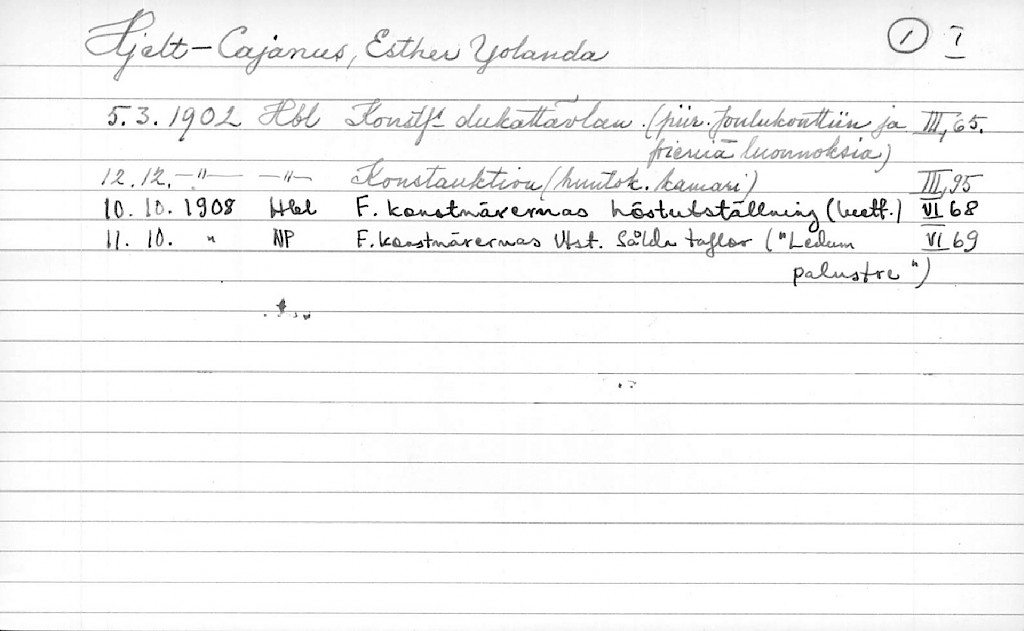 Hjelt-Cajanus, Esther Yolanda 1 I
5.3.1902 Hbl Konstf:s dukattäflan (piir. Joulukonttiin ja III, 65.
pieniä luonnoksia)
12.12. -"- -"- Konstauktion (huutok. kamari) III, 95
10.10.1908 Hbl F. konstnärernas höstutställning (luett.) VI 68
11.10. " NP F. konstnärernas Utst. Sålda taflor ("Ledum VI 69
palustre")